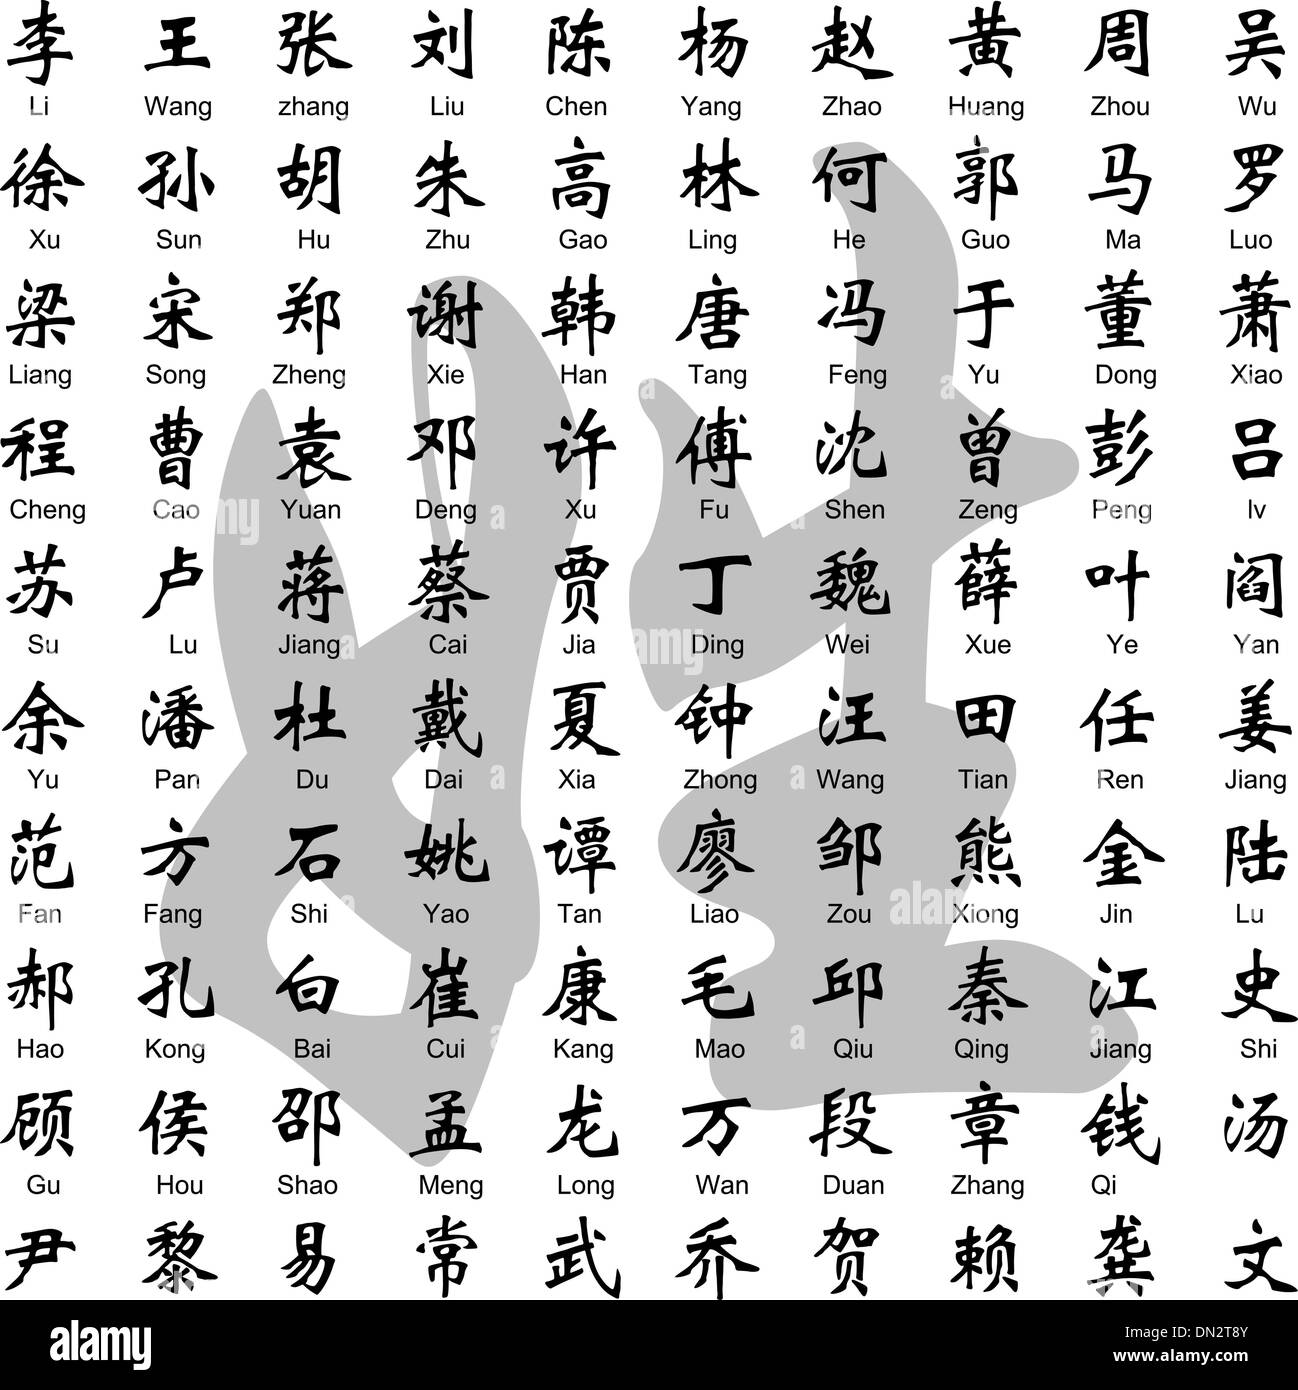 李 王 张 刘 陈 杨 赵 黄 周 吴
Li Wang zhang Liu Chen Yang Zhao Huang Zhou Wu
徐 孙 胡 朱 高 林 何 郭 马 罗
Xu Sun Hu Zhu Gao Ling He Guo Ma Luo
梁 宋 郑 谢 韩 唐 冯 于 董 萧
Liang Song Zheng Xie Han Tang Feng Yu Dong Xiao
程 曹 袁 邓 许 傅 沈 曾 彭 吕
Cheng Cao Yuan Deng Xu Fu Shen Zeng Peng lv
苏 卢 蒋 蔡 贾 丁 魏 薛 叶 阎
Su Lu Jiang Cai Jia Ding Wei Xue Ye Yan
余 潘 杜 戴 夏 钟 汪 田 任 姜
Yu Pan Du Dai Xia Zhong Wang Tian Ren Jiang
范 方 石 姚 谭 廖 邹 熊 金 陆
Fan Fang Shi Yao Tan Liao Zou Xiong Jin Lu
郝 孔 白 崔 康 毛 邱 秦 江 史
Hao Kong Bai Cui Kang Mao Qiu Qing Jiang Shi
顾 侯 邵 孟 龙 万 段 章 钱 汤
Gu Hou Shao Meng Long Wan Duan Zhang Qi
尹 黎 易 常 武 乔 贺 赖 龚 文
姓
alamy
alamy
alamy
a
a
a
a
alamy
Image ID: DN2T8Y
www.alamy.com